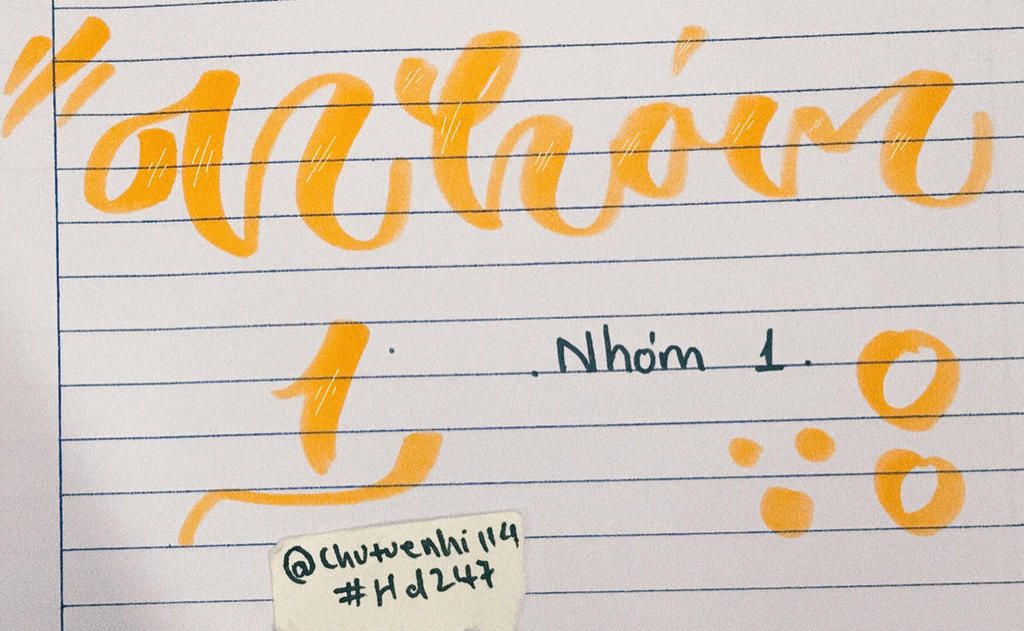 Nhóm
1
. Nhóm 1.
@chutuenhi114
#Hd247